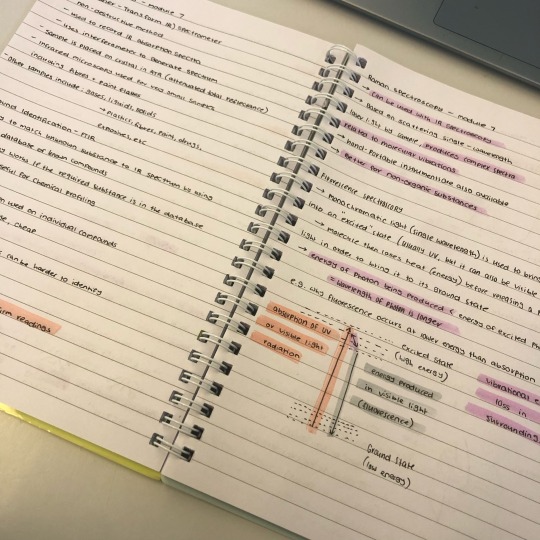 - module 7
(Fourier - Transform IR) spectrometer
- non-destructive method
- used to record IR absorption spectra
- uses interferometer to generate spectrum
- Sample is placed on crystal in ATR (attenuated total reflectance)
- infrared microscopy used for very small samples
including fibres + paint flakes
- other samples include: gases, liquids, solids
→ plastics, fibres, paint, drugs,
explosives, etc
Identification - FTIR
to match unknown substance to IR spectrum by using
database of known compounds
works if the required substance is in the database
useful for chemical profiling
used on individual compounds
cheap
can be harder to identify
readings
Raman spectroscopy - module 7
→ can be used with IR spectroscopy
→ Based on scattering single-wavelength
laser light by sample, produces complex spectra
related to molecular vibrations
→ hand-portable instruments also available
→ Better for non-organic substances
Fluorescence Spectroscopy
→ Monochromatic light (single wavelength) is used to bring
into an "excited" state (usually UV, but it can also be visible
→ molecule then loses heat (energy) before releasing a
light in order to bring it to its Ground State
→ Energy of Photon being produced < energy of excited
= wavelength of Photon is longer
e.g. why fluorescence occurs at lower energy than absorption
absorption of UV
or visible light
radiation
Excited State
(high energy)
energy produced
in visible light
(fluorescence)
vibrational
loss in
surrounding
Ground State
(low energy)